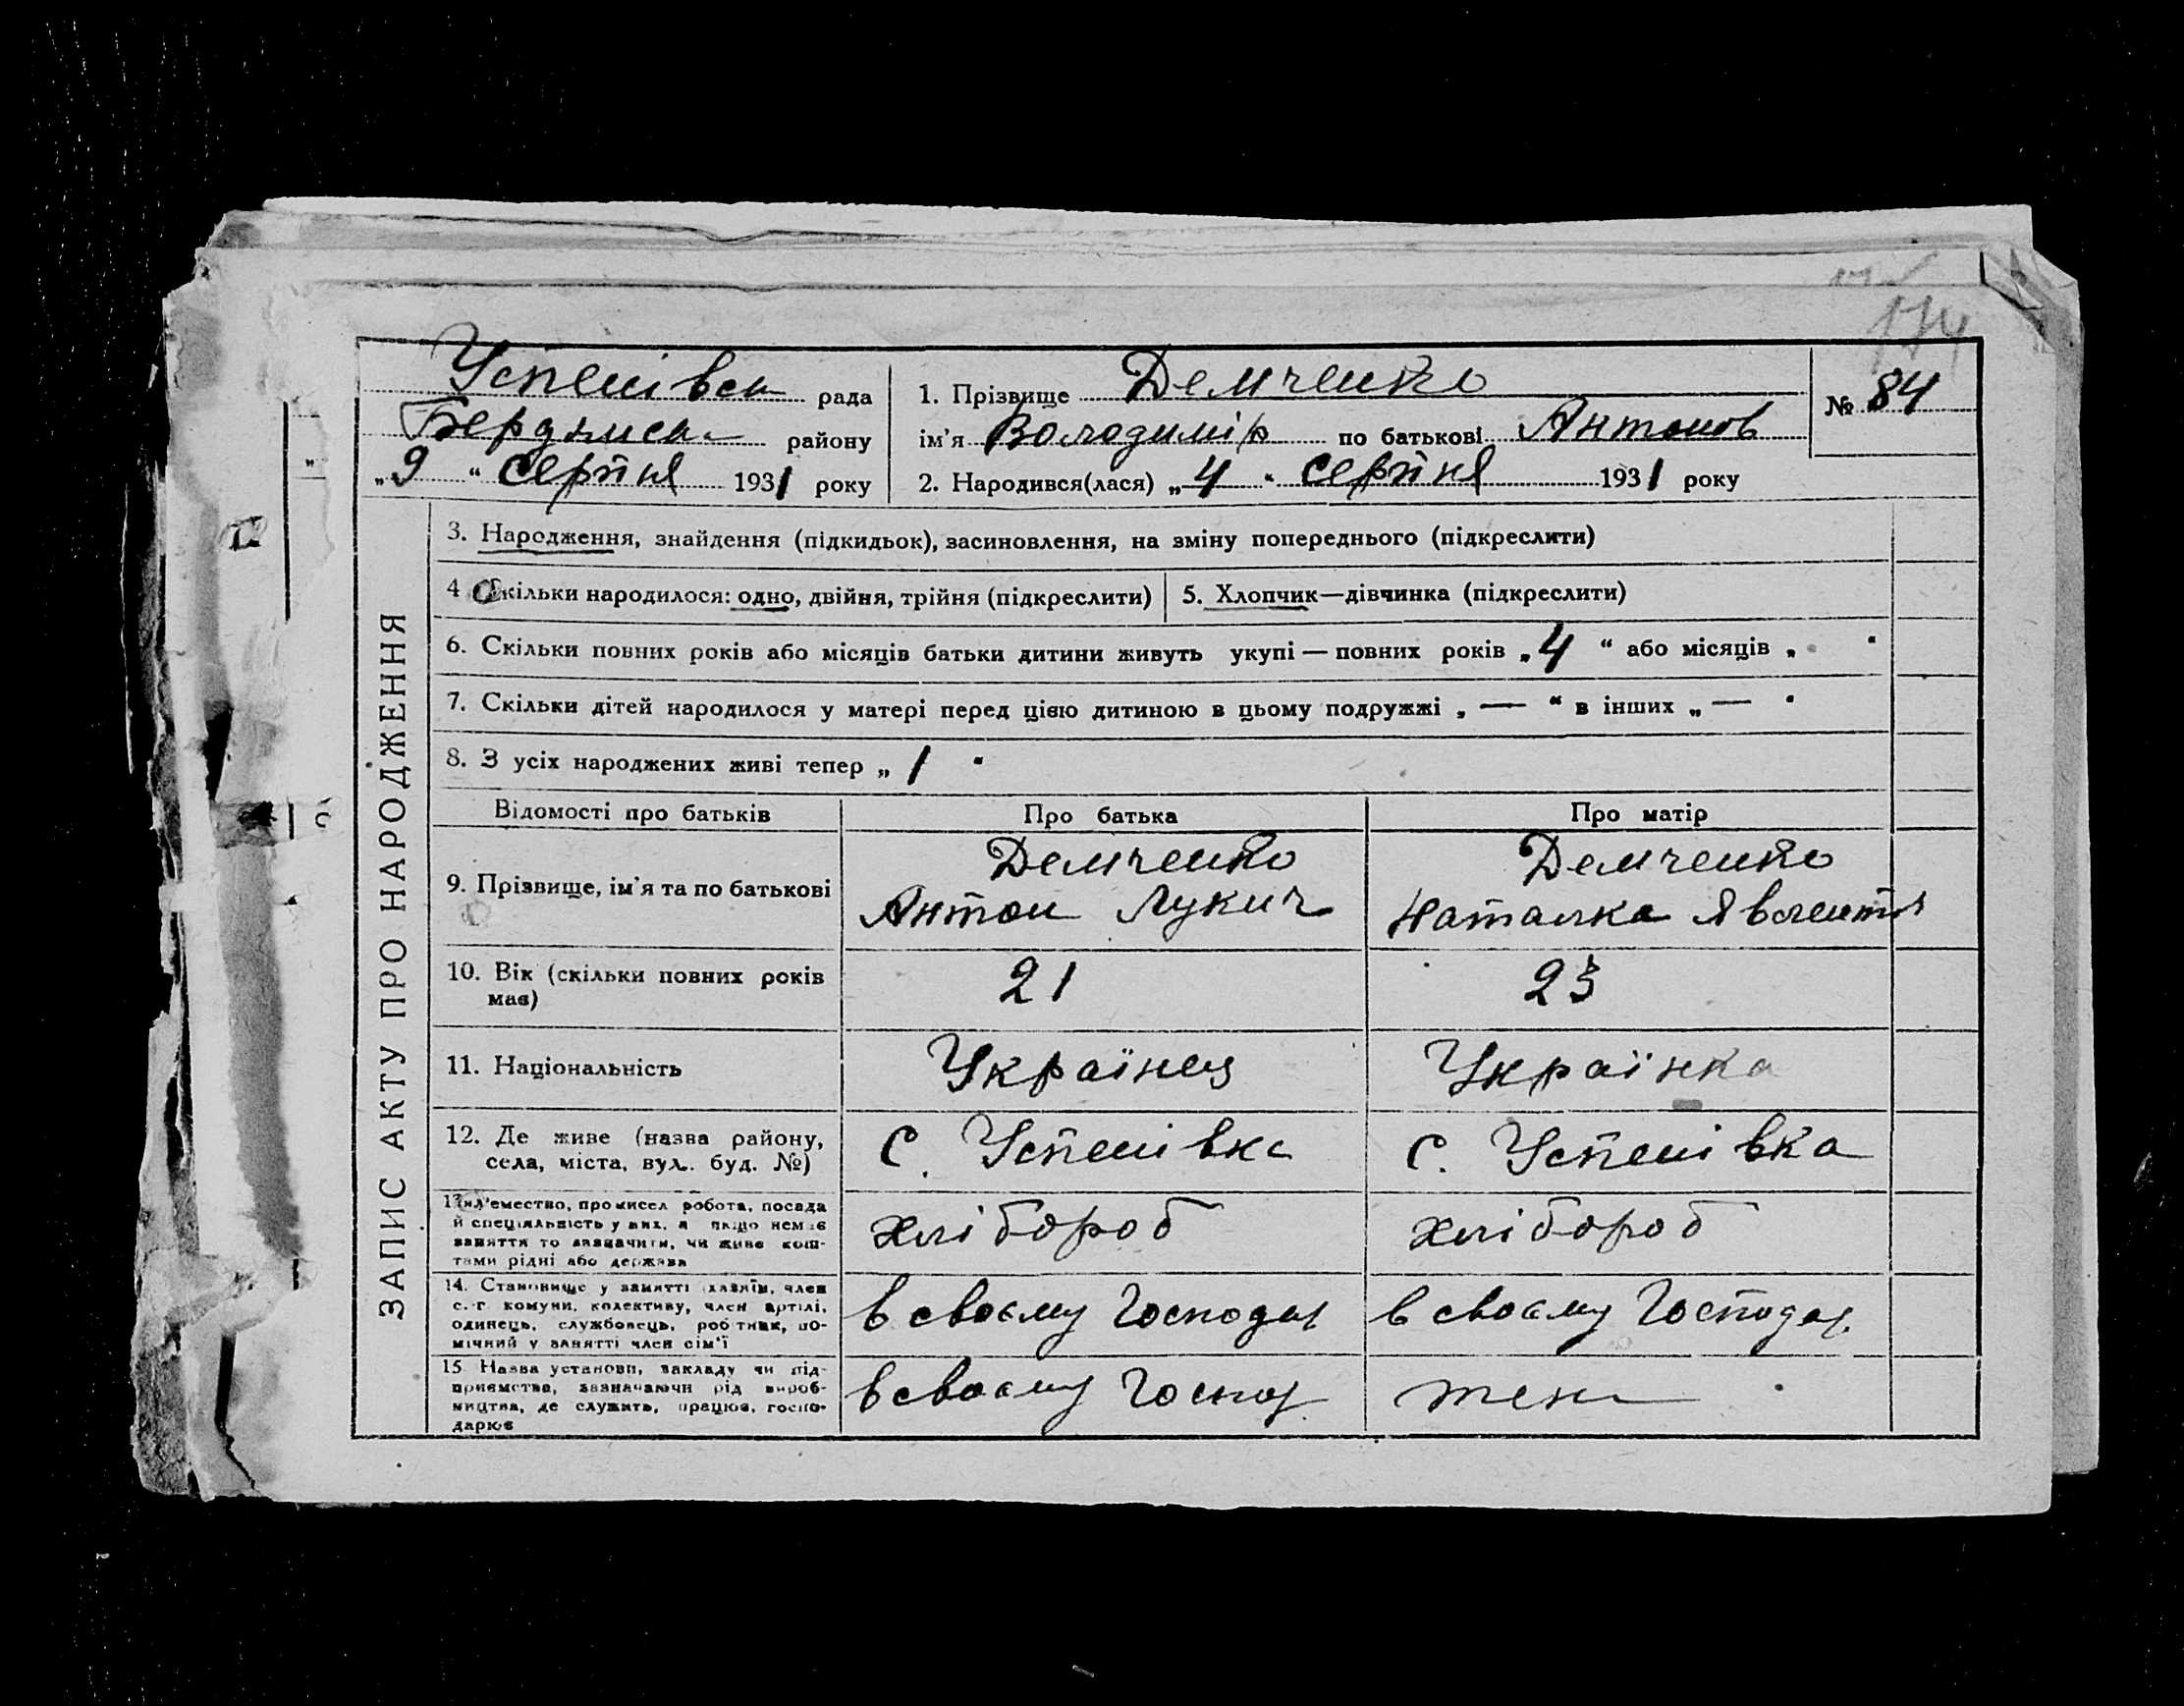 174
Успенівськ рада
Бердянськ району
„9“ серпня 1931 року
1. Прізвище Демченко
ім’я Володимір по батькові Антонов
№ 84
2. Народився(лася) „4“ серпня 1931 року
ЗАПИС АКТУ ПРО НАРОДЖЕННЯ
3. Народження, знайдення (підкидьок), засиновлення, на зміну попереднього (підкреслити)
4 Скільки народилося: одно, двійня, трійня (підкреслити) 5. Хлопчик—дівчинка (підкреслити)
6. Скільки повних років або місяців батьки дитини живуть укупі — повних років „4“ або місяців „ “
7. Скільки дітей народилося у матері перед цією дитиною в цьому подружжі „—“ в інших „—“
8. З усіх народжених живі тепер „1“
Відомості про батьків Про батька Про матір
9. Прізвище, ім’я та по батькові
Демченко
Антон Лукич
Демченко
Наталка
10. Вік (скільки повних років
має)
21 23
11. Національність Українец Українка
12. Де живе (назва району,
села, міста, вул. буд. №)
с. Успенівка с. Успенівка
13. Ремество, промисел робота, посада
й спеціяльність у них, а якщо немає
заняття то зазначити, чи живе кош-
тами рідні або держава
хлібороб хлібороб
14. Становище у занятті хазяїн, член
с.-г. комуни, колективу, член артілі,
одинець, службовець, робітник, по-
мічний у занятті член сім’ї
в своєму господар в своєму господар.
15 Назва установи, закладу чи під-
приємства, зазначаючи рід вироб-
ництва, де служить, працює, госпо-
дарює
в своєму господ.